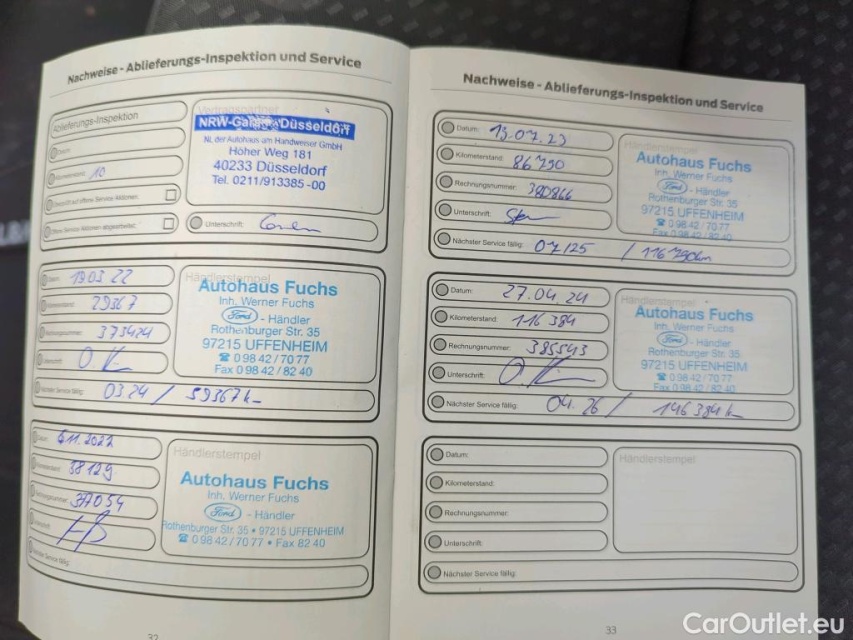 Nachweise - Ablieferungs-Inspektion und Service
Ablieferungs-Inspektion
Datum:
Kilometerstand: 10
Unterschrift:
Vertragspartner
NRW-Garage Düsseldorf
NL der Autohaus am Handweiser GmbH
Höher Weg 181
40233 Düsseldorf
Tel. 0211/913385-00
Datum: 19.03.22
29367
Rechnungsnummer: 373424
Unterschrift:
Nächster Service fällig: 03.24 / 59367 k
Händlerstempel
Autohaus Fuchs
Inh. Werner Fuchs
Ford - Händler
Rothenburger Str. 35
97215 UFFENHEIM
☎ 0 98 42 / 70 77
Fax 0 98 42 / 82 40
Datum: 11.2022
58129
Rechnungsnummer: 37054
Unterschrift:
Nächster Service fällig:
Händlerstempel
Autohaus Fuchs
Inh. Werner Fuchs
Ford - Händler
Rothenburger Str. 35 • 97215 UFFENHEIM
☎ 0 98 42 / 70 77 • Fax 82 40
32
Nachweise - Ablieferungs-Inspektion und Service
Datum: 13.07.23
Kilometerstand: 86790
Rechnungsnummer: 380866
Unterschrift:
Nächster Service fällig: 07/25 / 116790km
Händlerstempel
Autohaus Fuchs
Inh. Werner Fuchs
Ford - Händler
Rothenburger Str. 35
97215 UFFENHEIM
☎ 0 98 42 / 70 77
Fax 0 98 42 / 82 40
Datum: 27.04.24
Kilometerstand: 116384
Rechnungsnummer: 385543
Unterschrift:
Nächster Service fällig: 04.26 / 146384 k
Händlerstempel
Autohaus Fuchs
Inh. Werner Fuchs
Ford - Händler
Rothenburger Str. 35
97215 UFFENHEIM
☎ 0 98 42 / 70 77
Fax 0 98 42 / 82 40
Datum:
Kilometerstand:
Rechnungsnummer:
Unterschrift:
Nächster Service fällig:
Händlerstempel
33
CarOutlet.eu